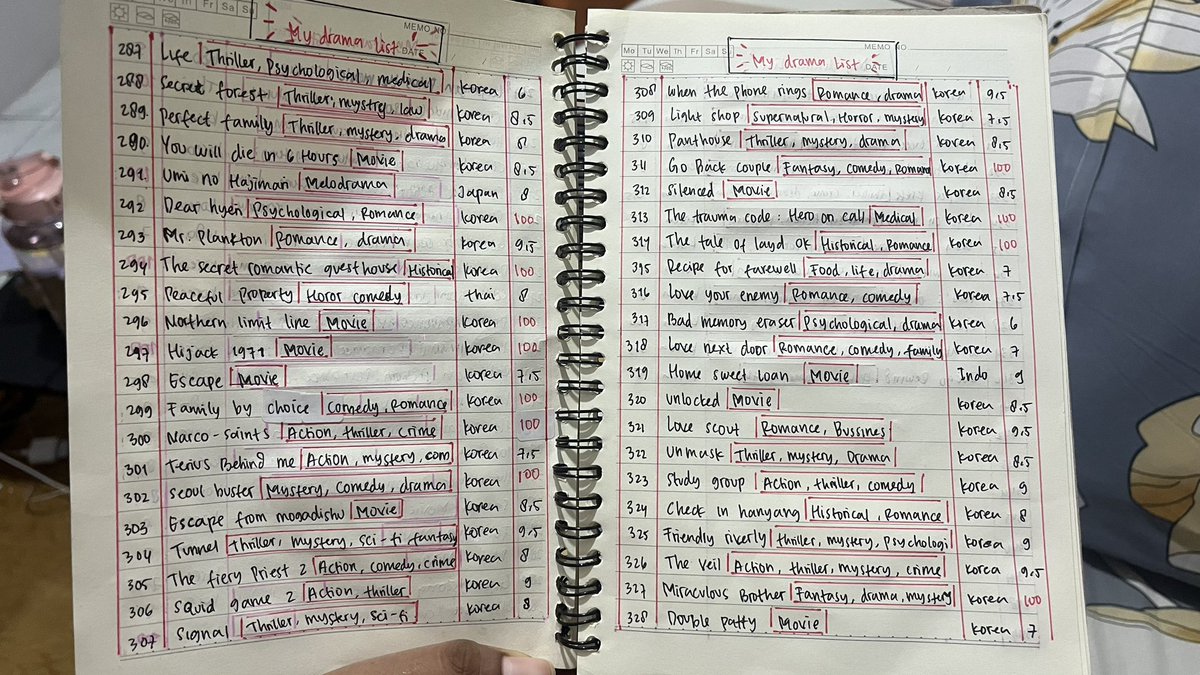 Fr Sa Su
MEMO NO
DATE
My drama list
287 Life Thriller, Psychological medical Korea 6
288. Secret forest Thriller, mystry, law Korea 8,5
289. Perfect family Thriller, mystery, drama Korea 8
290. You will die in 6 Hours Movie Korea 8,5
291. Umi no Hajimari Melodrama Japan 8
292 Dear hyeri Psychological, Romance Korea 100
293 Mr. Plankton Romance, drama Korea 9,5
294 The secret romantic guesthouse Historical Korea 100
295 Peaceful Property Horor comedy thai 8
296 Northern limit line Movie Korea 100
297 Hijack 1971 Movie Korea 100
298 Escape Movie Korea 7,5
299 Family by choice Comedy, Romance Korea 100
300 Narco-saints Action, thriller, crime Korea 100
301 Terius Behind me Action, mystery, com Korea 7,5
302 Seoul buster Mystery, Comedy, drama Korea 100
303 Escape from mogadishu Movie Korea 8,5
304 Tunnel Thriller, mystery, sci-fi fantasy Korea 9,5
305 The fiery Priest 2 Action, comedy, crime Korea 8
306 Squid game 2 Action, thriller Korea 9
307 Signal Thriller, mystery, sci-fi Korea 8
Mo Tu We Th Fr Sa S
MEMO NO
DATE
My drama List
308 When the phone rings Romance, drama Korea 9,5
309 Light shop Supernatural, Horror, mystery Korea 7,5
310 Panthouse Thriller, mystery, drama Korea 8,5
311 Go Back couple Fantasy, comedy, Romand Korea 100
312 Silenced Movie Korea 8,5
313 The trauma code : Hero on call Medical Korea 100
314 The tale of layd ok Historical, Romance Korea 100
395 Recipe for farewell Food, life, drama Korea 7
316 Love your enemy Romance, comedy Korea 7,5
317 Bad memory eraser Psychological, drama Korea 6
318 Love next door Romance, comedy, family Korea 7
319 Home sweet loan Movie Indo 9
320 Unlocked Movie Korea 8,5
321 Love scout Romance, Bussines Korea 9,5
322 Unmask Thriller, mystery, Drama Korea 8,5
323 Study group Action, thriller, comedy Korea 9
324 Check in hanyang Historical, Romance Korea 8
325 Friendly riverly thriller, mystery, psychologi Korea 9
326 The Veil Action, thriller, mystery, crime Korea 9,5
327 Miraculous Brother Fantasy, drama, mystery Korea 100
328 Double patty Movie Korea 7